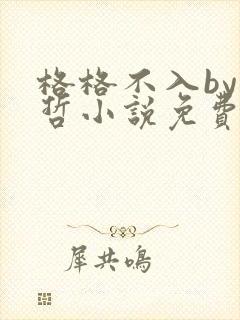 格格不入by
哲小說免費
犀共鳴